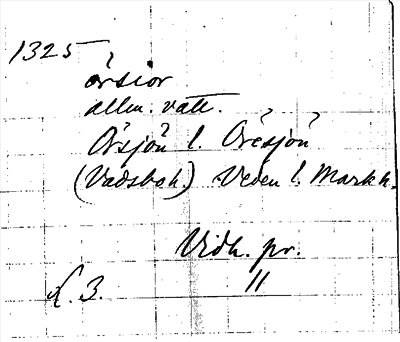 1325
örsior
allm. vatt.
Örsjön l. Öresjön
(Vadsboh.) Veden l. Markh.
Vidh. pr.
11
L. 3.